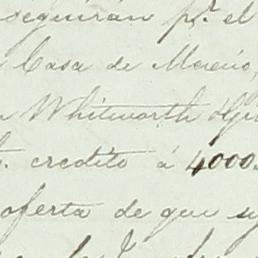 seguirán pr. el
Casa de Moreno,
Whitworth
credito á 4000
oferta de que